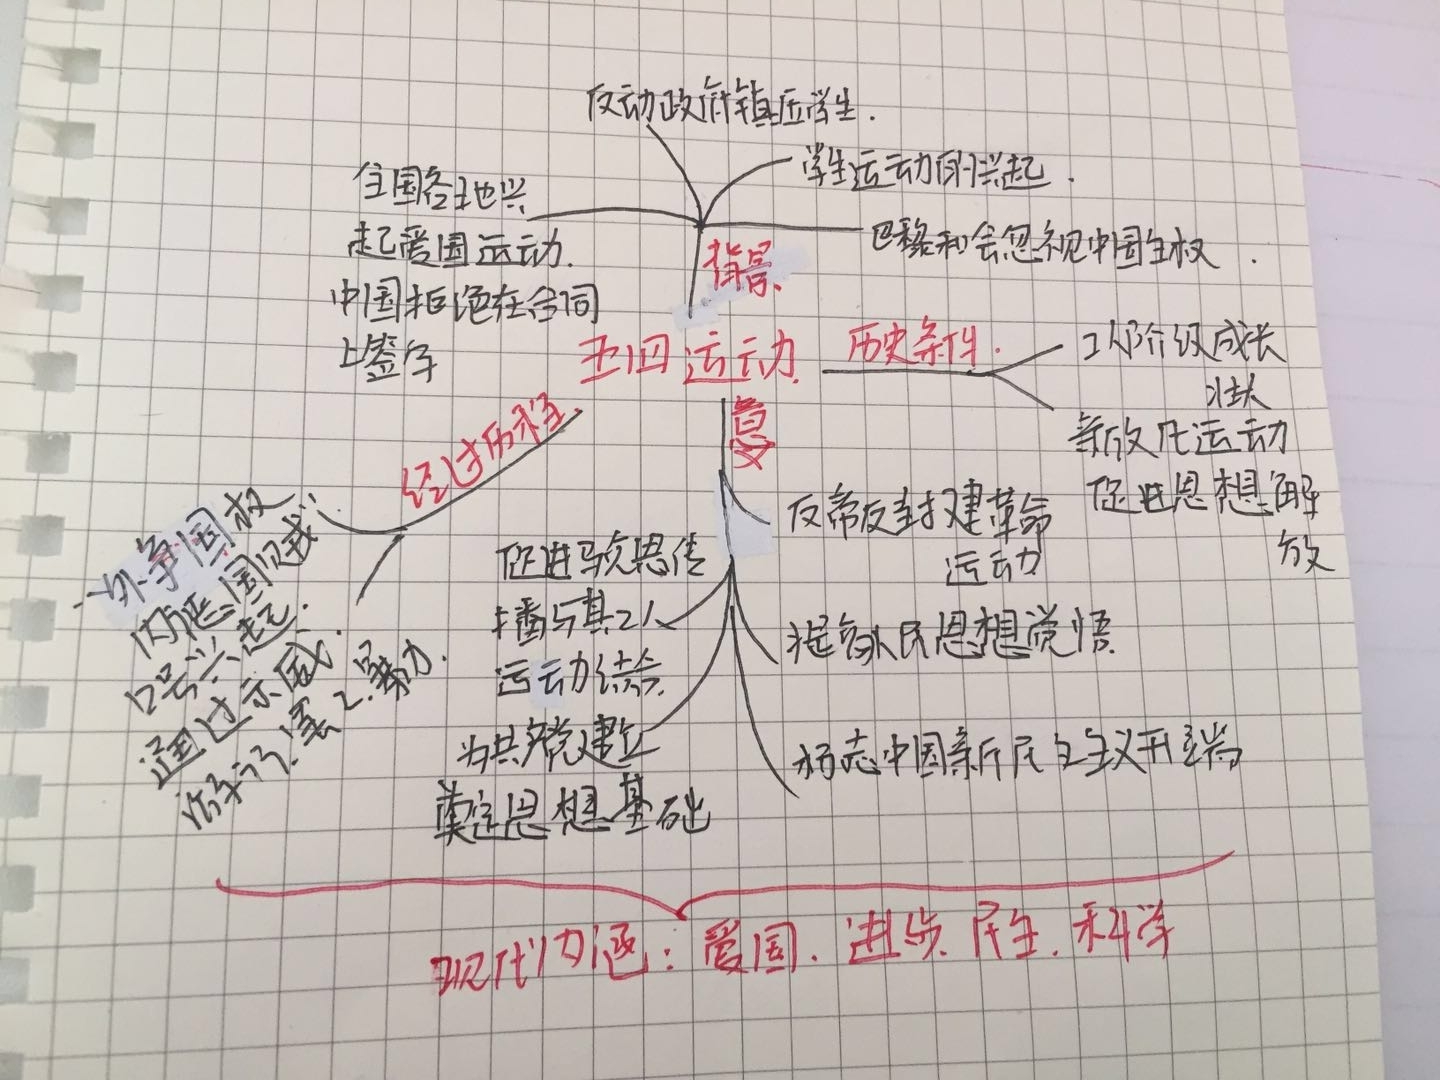 反动政府镇压学生.
学生运动的兴起.
全国各地兴
起爱国运动.
中国拒绝在合同
上签字
巴黎和会忽视中国主权.
背景
五四运动
历史条件.
工人阶级成长
壮大
新文化运动
促进思想解
放
经过历程
外争国权
内惩国贼:
口号兴起.
通过示威.
游行.罢工.暴力.
意义
反帝反封建革命
运动
促进马克思传
播与其工人
运动结合.
提高人民思想觉悟
为共产党建立
奠定思想基础
标志中国新民主主义开端
现代内涵: 爱国. 进步. 民主. 科学